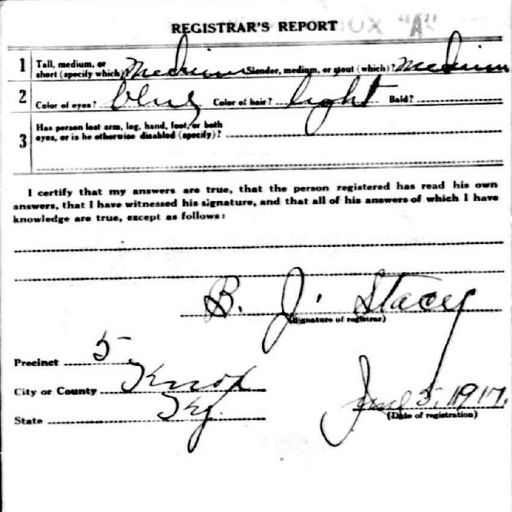 REGISTRAR'S REPORT
1 Tall, medium, or short (specify which)? Medium Slender, medium, or stout (which)? medium
2 Color of eyes? blue Color of hair? light Bald?
3 Has person lost arm, leg, hand, foot, or both eyes, or is he otherwise disabled (specify)?
I certify that my answers are true, that the person registered has read his own
answers, that I have witnessed his signature, and that all of his answers of which I have
knowledge are true, except as follows:
B. J. Stacey
(Signature of registrar)
Precinct 5
City or County Knox
State Ky.
June 5, 1917.
(Date of registration)